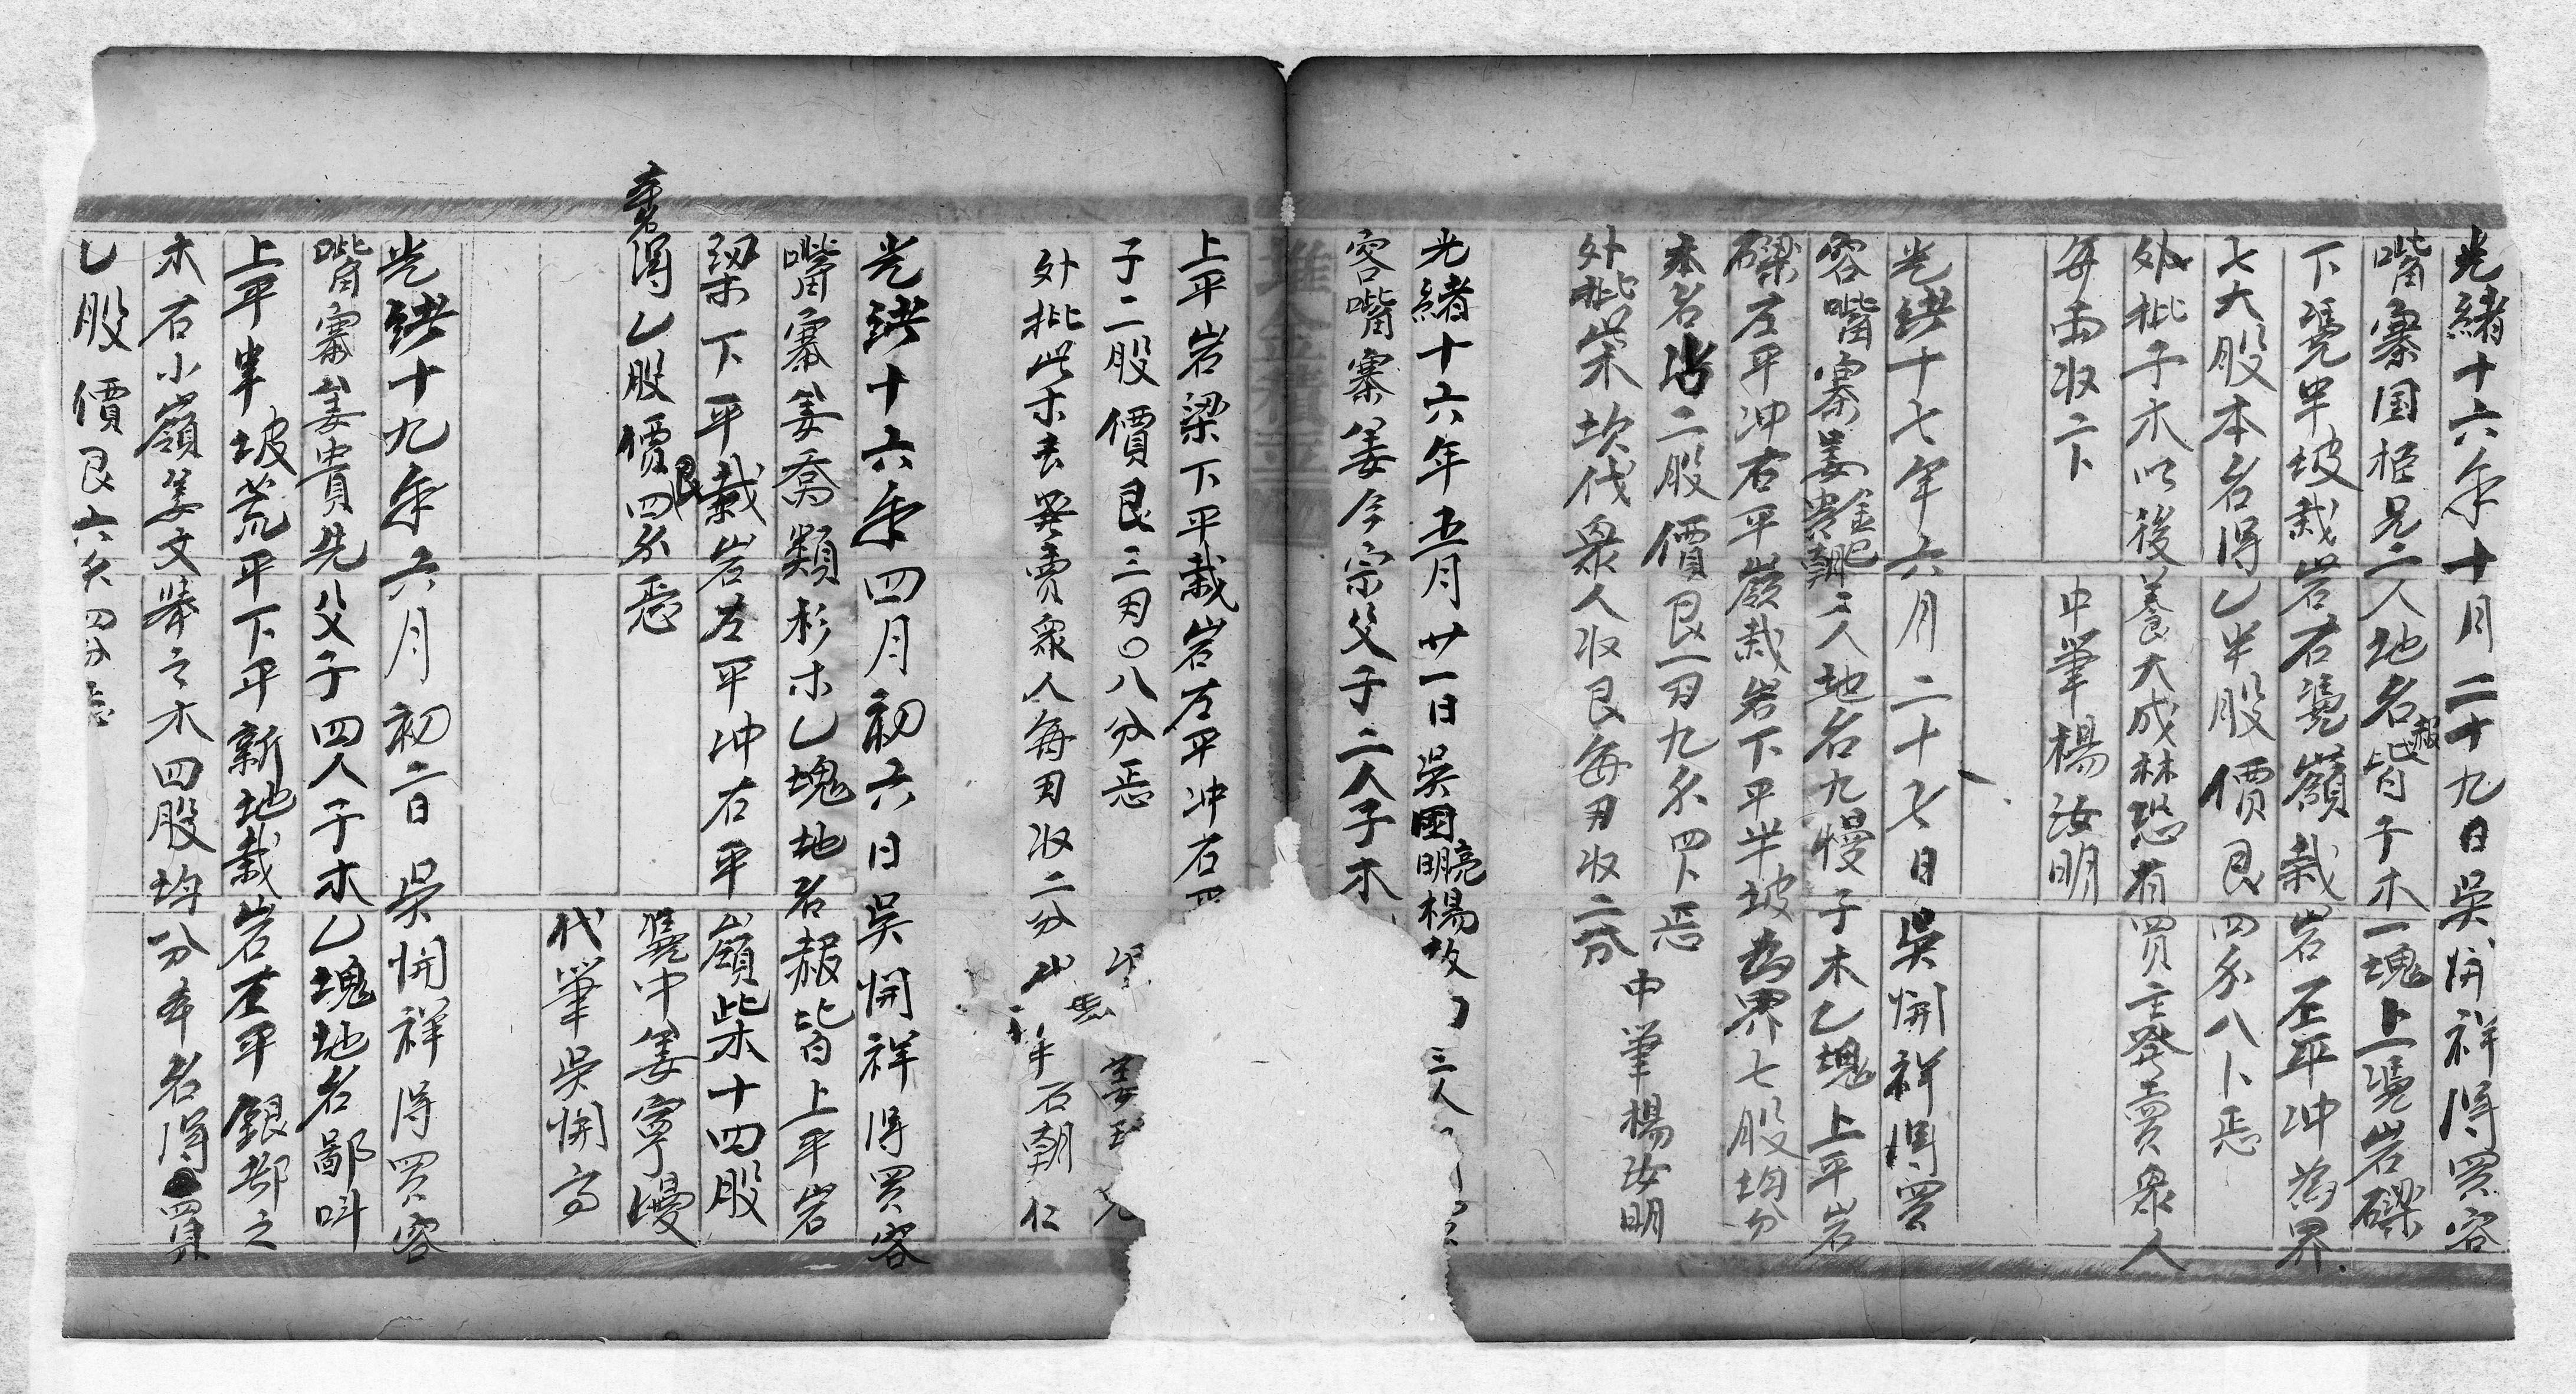 光緒十六年十月二十九日吳開祥得買容
嘴寨国柜兄二人地名報皆子木一塊上凴岩磉
下凴半坡栽岩右凴嶺栽岩左平冲為界
七大股本名得乙半股價艮四分八卜忢
外批子木以後養大成林恐有買主癸賣衆人
每両収二卜 中筆楊汝明
光緒十七年六月二十七日吳開祥得買
容嘴寨姜朝三人地名九慢子木乙塊上平岩
磉左平冲右平嶺栽岩下平半坡為界七股均分
本名占二股價艮一刄九分四卜忢
外批柴木坎伐衆人収艮每刄収二分 中筆楊汝明
光緒十六年五月廿一日吳國明亮楊故三人
容嘴寨姜今宗父子二人子木
上平岩梁下平栽岩左平冲右
子二股價艮三刄〇八分忢
外批此木去癸賣衆人每刄収二分 石朝仁
光緒十六年四月初六日吳開祥得買容
嘴寨姜喬類杉木乙塊地名報皆上平岩
梁下平栽岩左平冲右平嶺柴木十四股
本名得乙股價艮四分忢 凴中姜寧慢
代筆吳開高
光緒十九年六月初二日吳開祥得買容
嘴寨姜貴先父子四人子木乙塊地名鄙呌
上平半坡荒平下平新地栽岩左平銀鄀之
木右小嶺姜文舉之木四股均分本名得買
乙股價艮六分四分忢